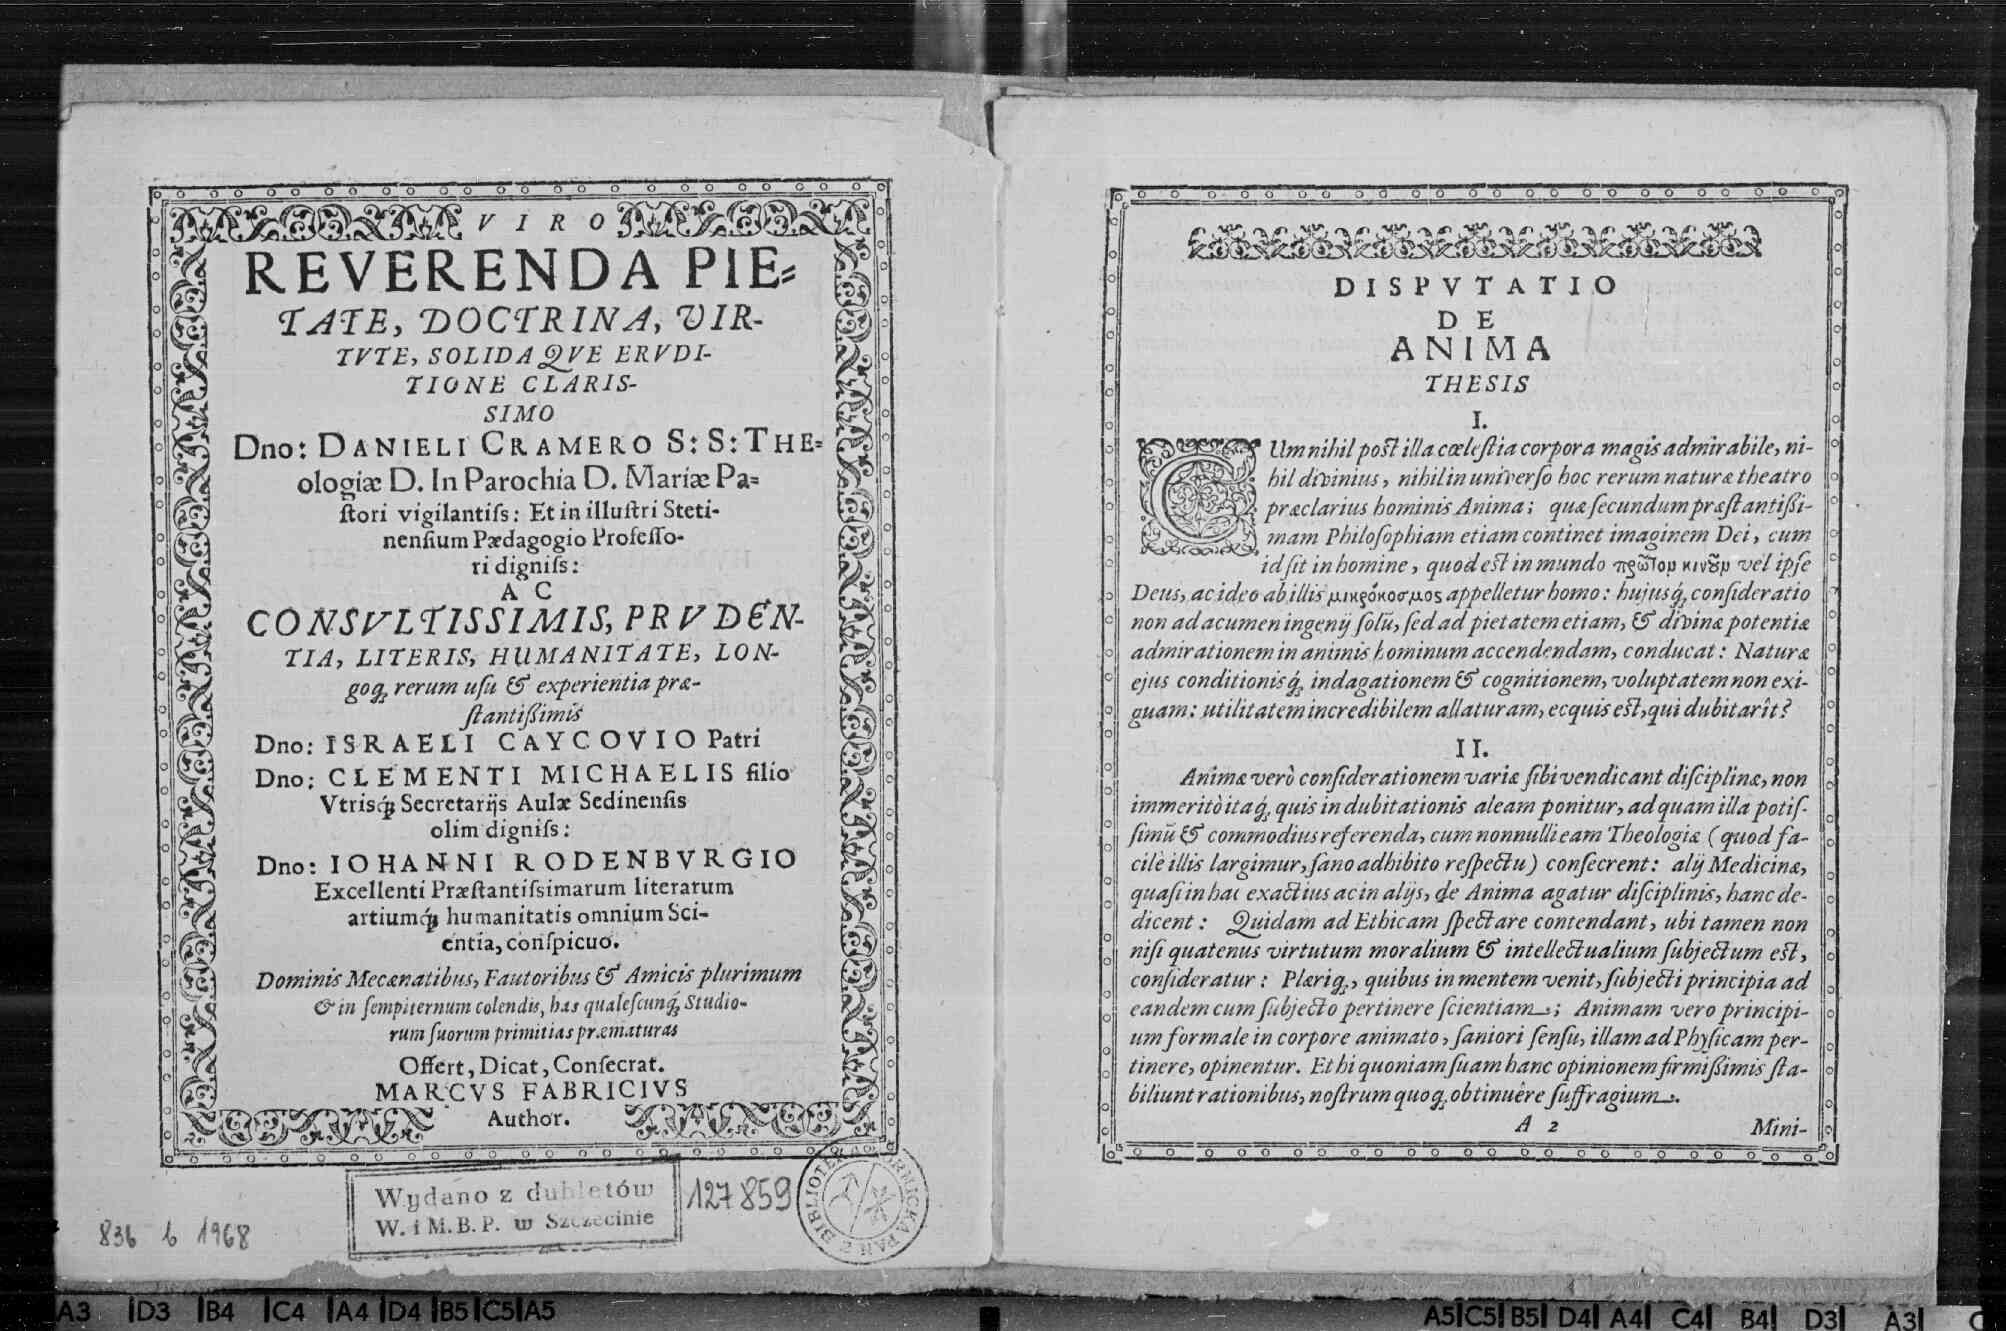 VIRO
REVERENDA PIE=
TATE, DOCTRINA, VIR-
TVTE, SOLIDA QVE ERVDI-
TIONE CLARIS-
SIMO
Dno: DANIELI CRAMERO S: S: THE=
ologiæ D. In Parochia D. Mariæ Pa=
ſtori vigilantiſs: Et in illuſtri Steti-
nenſium Pædagogio Profeſſo-
ri digniſs:
A C
CONSVLTISSIMIS, PRVDEN-
TIA, LITERIS, HUMANITATE, LON-
goq́; rerum uſu & experientia præ-
ſtantißimis
Dno: ISRAELI CAYCOVIO Patri
Dno: CLEMENTI MICHAELIS filio
Vtrisq́; Secretarijs Aulæ Sedinenſis
olim digniſs:
Dno: IOHANNI RODENBVRGIO
Excellenti Præſtantiſsimarum literarum
artiumq́; humanitatis omnium Sci-
entia, conſpicuo.
Dominis Mecænatibus, Fautoribus & Amicis plurimum
& in ſempiternum colendis, has qualeſcunq́; Studio-
rum ſuorum primitias præmaturas
Offert, Dicat, Conſecrat.
MARCVS FABRICIVS
Author.
Wydano z dubletów
W. i M.B.P. w Szczecinie
127859
836 b 1968
DISPVTATIO
DE
ANIMA
THESIS
I.
CUm nihil poſt illa cœleſtia corpora magis admirabile, ni-
hil divinius, nihil in univerſo hoc rerum naturæ theatro
præclarius hominis Anima; quæ ſecundum præſtantißi-
mam Philoſophiam etiam continet imaginem Dei, cum
id ſit in homine, quod eſt in mundo πρῶτομ κινȣ͂μ vel ipſe
Deus, ac ideo ab illis μικρόκοσμος appelletur homo: hujusq́; conſideratio
non ad acumen ingenij ſolũ, ſed ad pietatem etiam, & divinæ potentiæ
admirationem in animis hominum accendendam, conducat: Naturæ
ejus conditionisq́; indagationem & cognitionem, voluptatem non exi-
guam: utilitatem incredibilem allaturam, ecquis eſt, qui dubitarît?
II.
Animæ verò conſiderationem variæ ſibi vendicant diſciplinæ, non
immeritò itaq́; quis in dubitationis aleam ponitur, ad quam illa potiſ-
ſimũ & commodius referenda, cum nonnulli eam Theologiæ (quod fa-
cilè illis largimur, ſano adhibito reſpectu) conſecrent: alij Medicinæ,
quaſi in hac exactius ac in alijs, de Anima agatur diſciplinis, hanc de-
dicent: Quidam ad Ethicam ſpectare contendant, ubi tamen non
niſi quatenus virtutum moralium & intellectualium ſubjectum eſt,
conſideratur: Plæriq;, quibus in mentem venit, ſubjecti principia ad
eandem cum ſubjecto pertinere ſcientiam; Animam vero principi-
um formale in corpore animato, ſaniori ſenſu, illam ad Phyſicam per-
tinere, opinentur. Et hi quoniam ſuam hanc opinionem firmißimis ſta-
biliunt rationibus, noſtrum quoq; obtinuêre ſuffragium.
A 2
Mini-
A3 D3 B4 C4 A4 D4 B5 C5 A5
A5 C5 B5 D4 A4 C4 B4 D3 A3